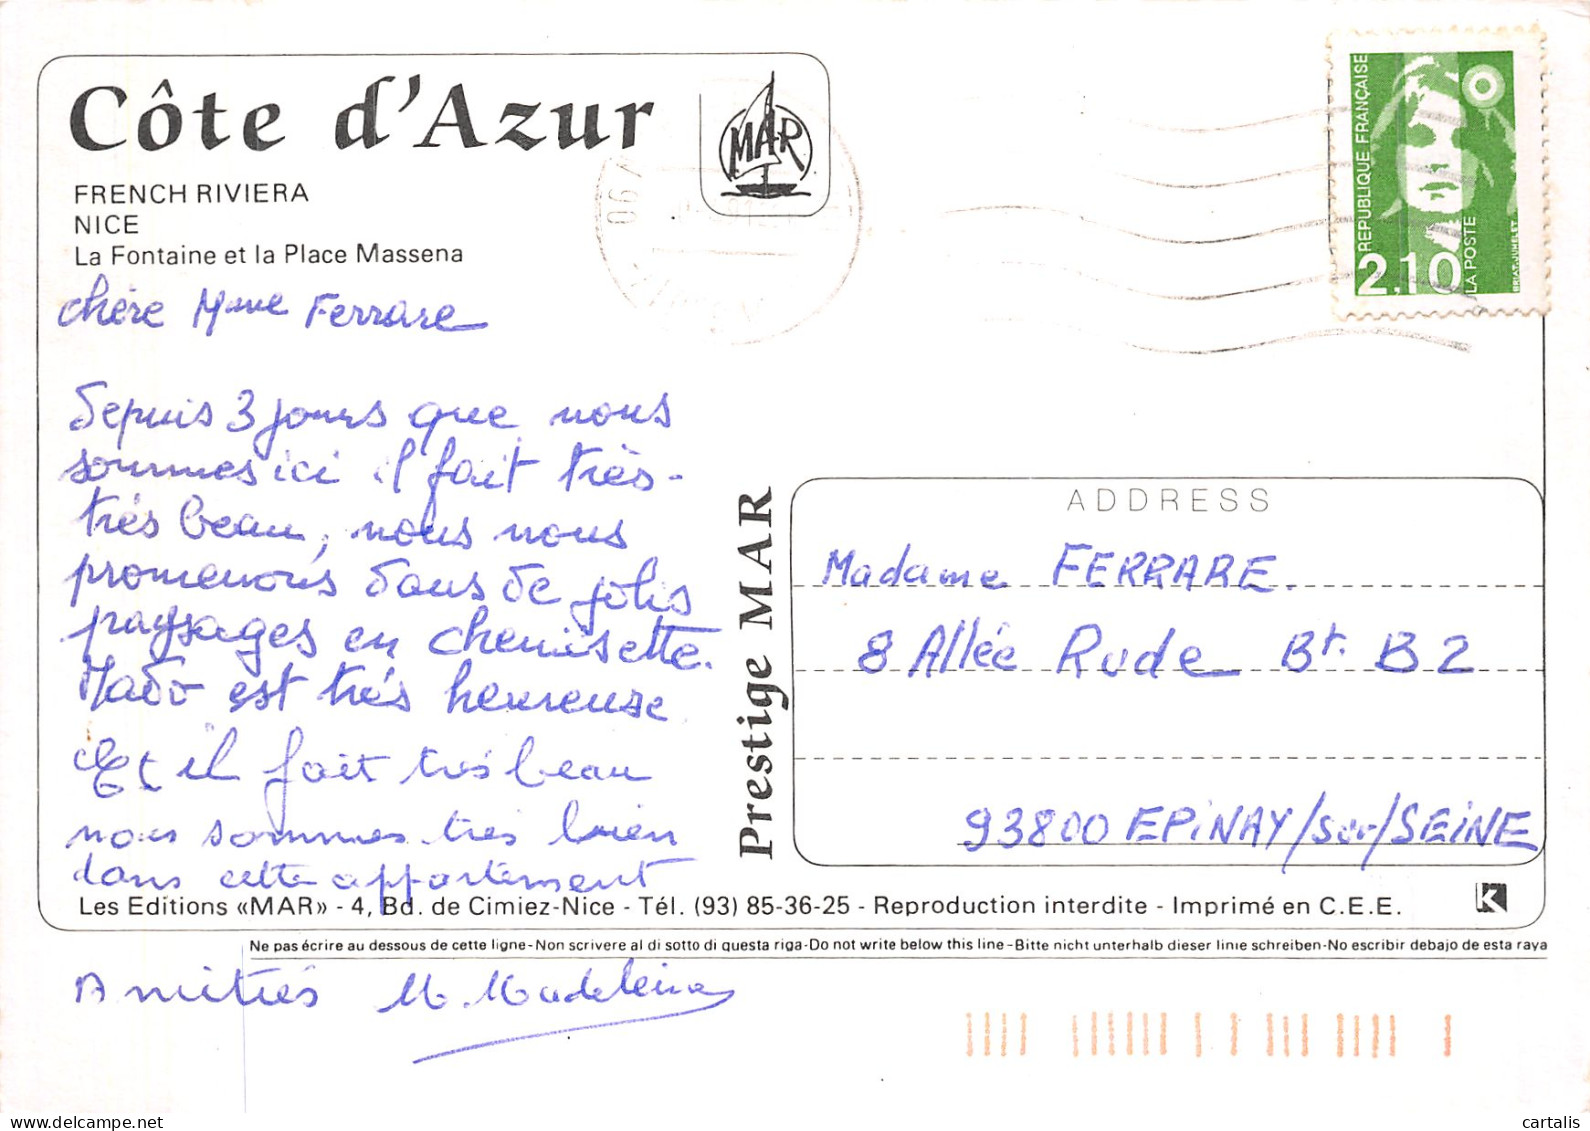 Côte d'Azur
FRENCH RIVIERA
NICE
La Fontaine et la Place Massena
MAR
067
RÉPUBLIQUE FRANÇAISE
2,10
LA POSTE
BRIAT-JUMELET
chère Mme Ferrare
depuis 3 jours que nous
sommes ici il fait très-
très beau, nous nous
promenons dans de jolis
paysages en chemisette.
Mado est très heureuse
Et il fait très beau
nous sommes très bien
dans cette appartement
Amitiés M. Madeleine
Prestige MAR
ADDRESS
Madame FERRARE.
8 Allée Rude Bt. B2
93800 EPiNAY/sur/SEiNE
Les Editions «MAR» - 4, Bd. de Cimiez-Nice - Tél. (93) 85-36-25 - Reproduction interdite - Imprimé en C.E.E.
K
Ne pas écrire au dessous de cette ligne-Non scrivere al di sotto di questa riga-Do not write below this line-Bitte nicht unterhalb dieser linie schreiben-No escribir debajo de esta raya
delcampe.net
cartalis